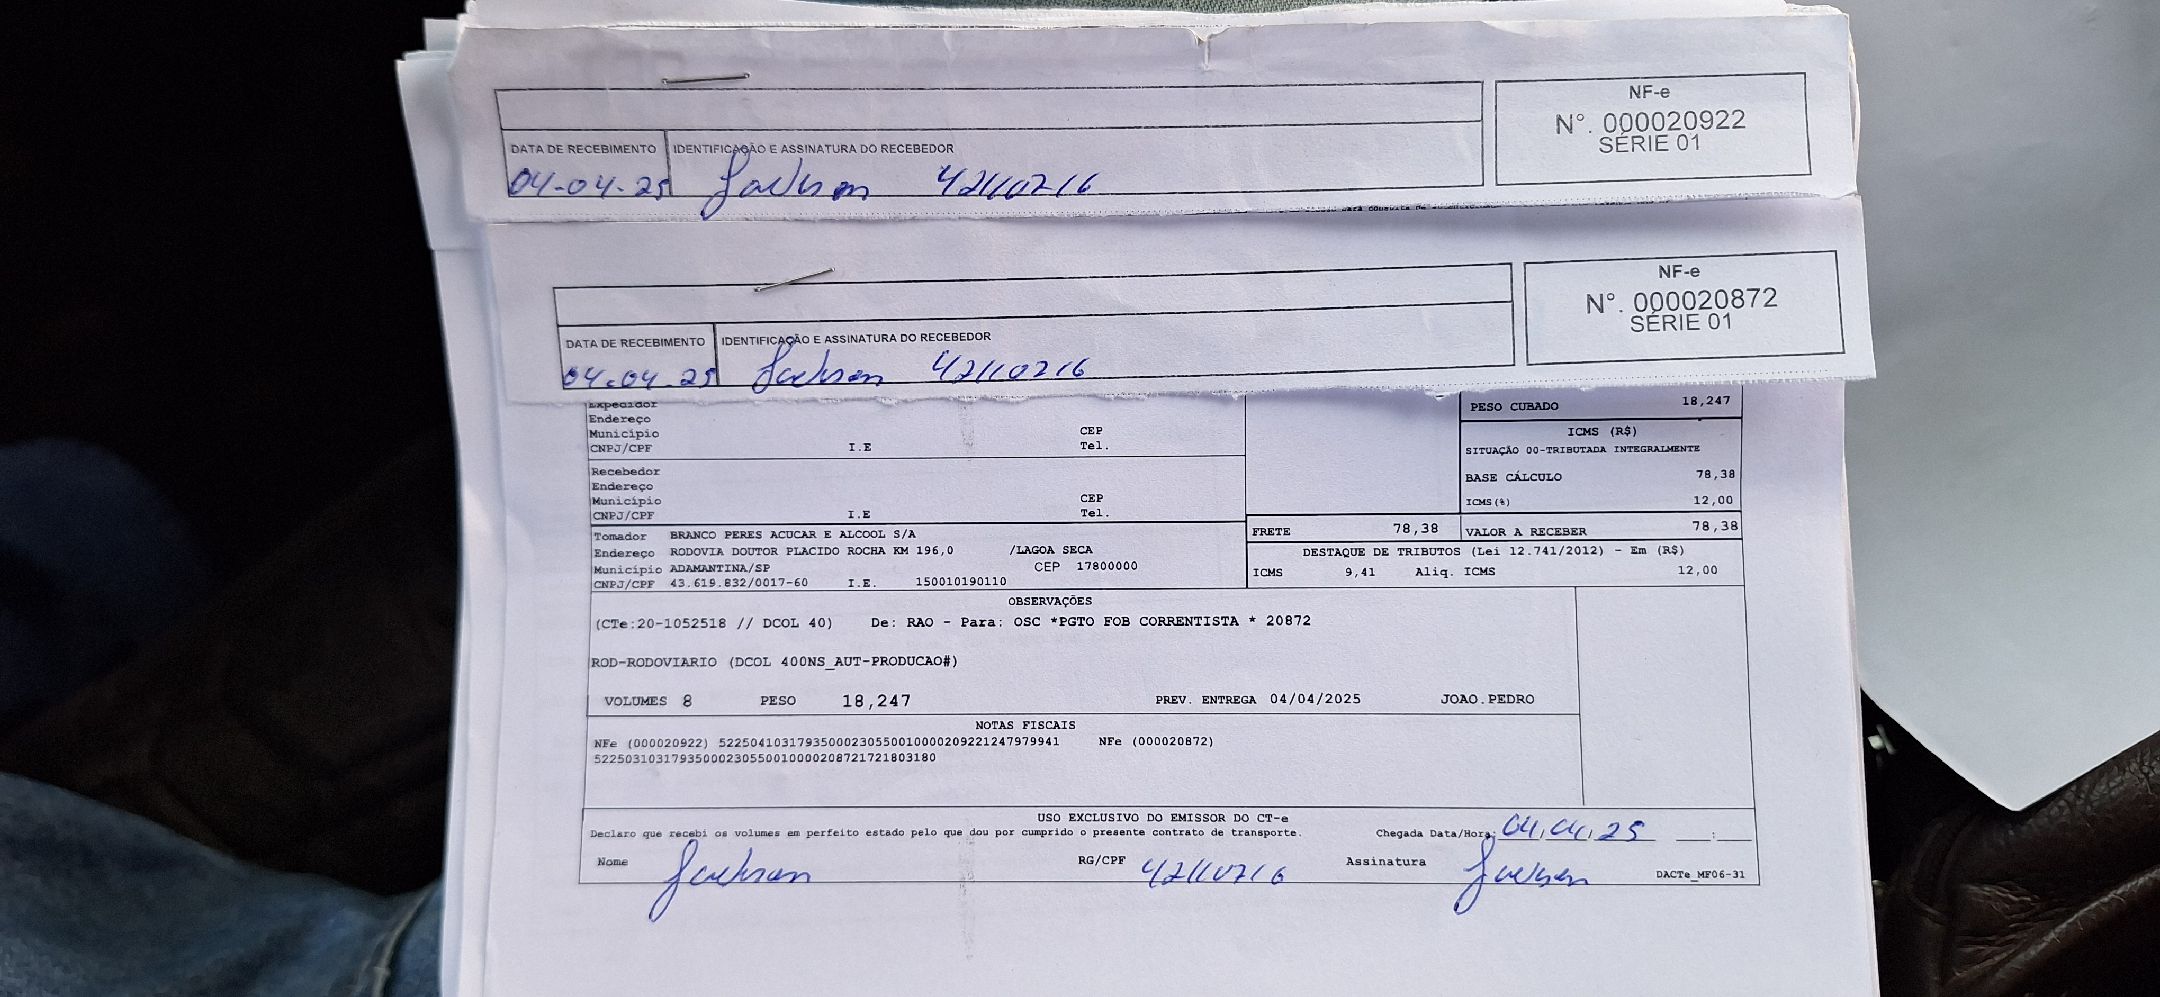 NF-e
N°. 000020922
SÉRIE 01
DATA DE RECEBIMENTO IDENTIFICAÇÃO E ASSINATURA DO RECEBEDOR
04-04-25 Jackson 42110716
NF-e
N°. 000020872
SÉRIE 01
DATA DE RECEBIMENTO IDENTIFICAÇÃO E ASSINATURA DO RECEBEDOR
04-04-25 Jackson 42110716
Expedidor
Endereço
Município CEP
CNPJ/CPF I.E Tel.
PESO CUBADO 18,247
ICMS (R$)
SITUAÇÃO 00-TRIBUTADA INTEGRALMENTE
BASE CÁLCULO 78,38
ICMS(%) 12,00
Recebedor
Endereço
Município CEP
CNPJ/CPF I.E Tel.
FRETE 78,38 VALOR A RECEBER 78,38
Tomador BRANCO PERES ACUCAR E ALCOOL S/A
Endereço RODOVIA DOUTOR PLACIDO ROCHA KM 196,0 /LAGOA SECA
Município ADAMANTINA/SP CEP 17800000
CNPJ/CPF 43.619.832/0017-60 I.E. 150010190110
DESTAQUE DE TRIBUTOS (Lei 12.741/2012) - Em (R$)
ICMS 9,41 Aliq. ICMS 12,00
OBSERVAÇÕES
(CTe:20-1052518 // DCOL 40) De: RAO - Para: OSC *PGTO FOB CORRENTISTA * 20872
ROD-RODOVIARIO (DCOL 400NS_AUT-PRODUCAO#)
VOLUMES 8 PESO 18,247 PREV. ENTREGA 04/04/2025 JOAO.PEDRO
NOTAS FISCAIS
NFe (000020922) 52250410317935000230550010000209221247979941 NFe (000020872)
52250310317935000230550010000208721721803180
USO EXCLUSIVO DO EMISSOR DO CT-e
Declaro que recebi os volumes em perfeito estado pelo que dou por cumprido o presente contrato de transporte. Chegada Data/Hora: 04,04,25 __:__
Nome Jackson RG/CPF 42110716 Assinatura Jackson DACTe_MF06-31